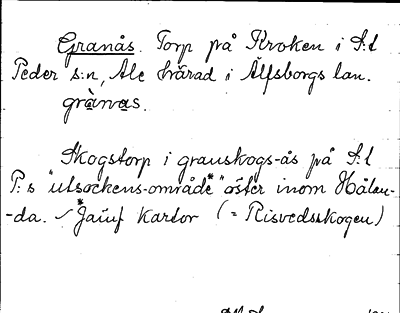 Granås. Torp på Kroken i S:t
Peder s:n, Ale härad i Älfsborgs lan.
grànas.
Skogstorp i granskogs-ås på S:t
P:s "utsockens-område*" öster inom Hålan-
-da. *Jämf kartor (= Risvedsskogen)